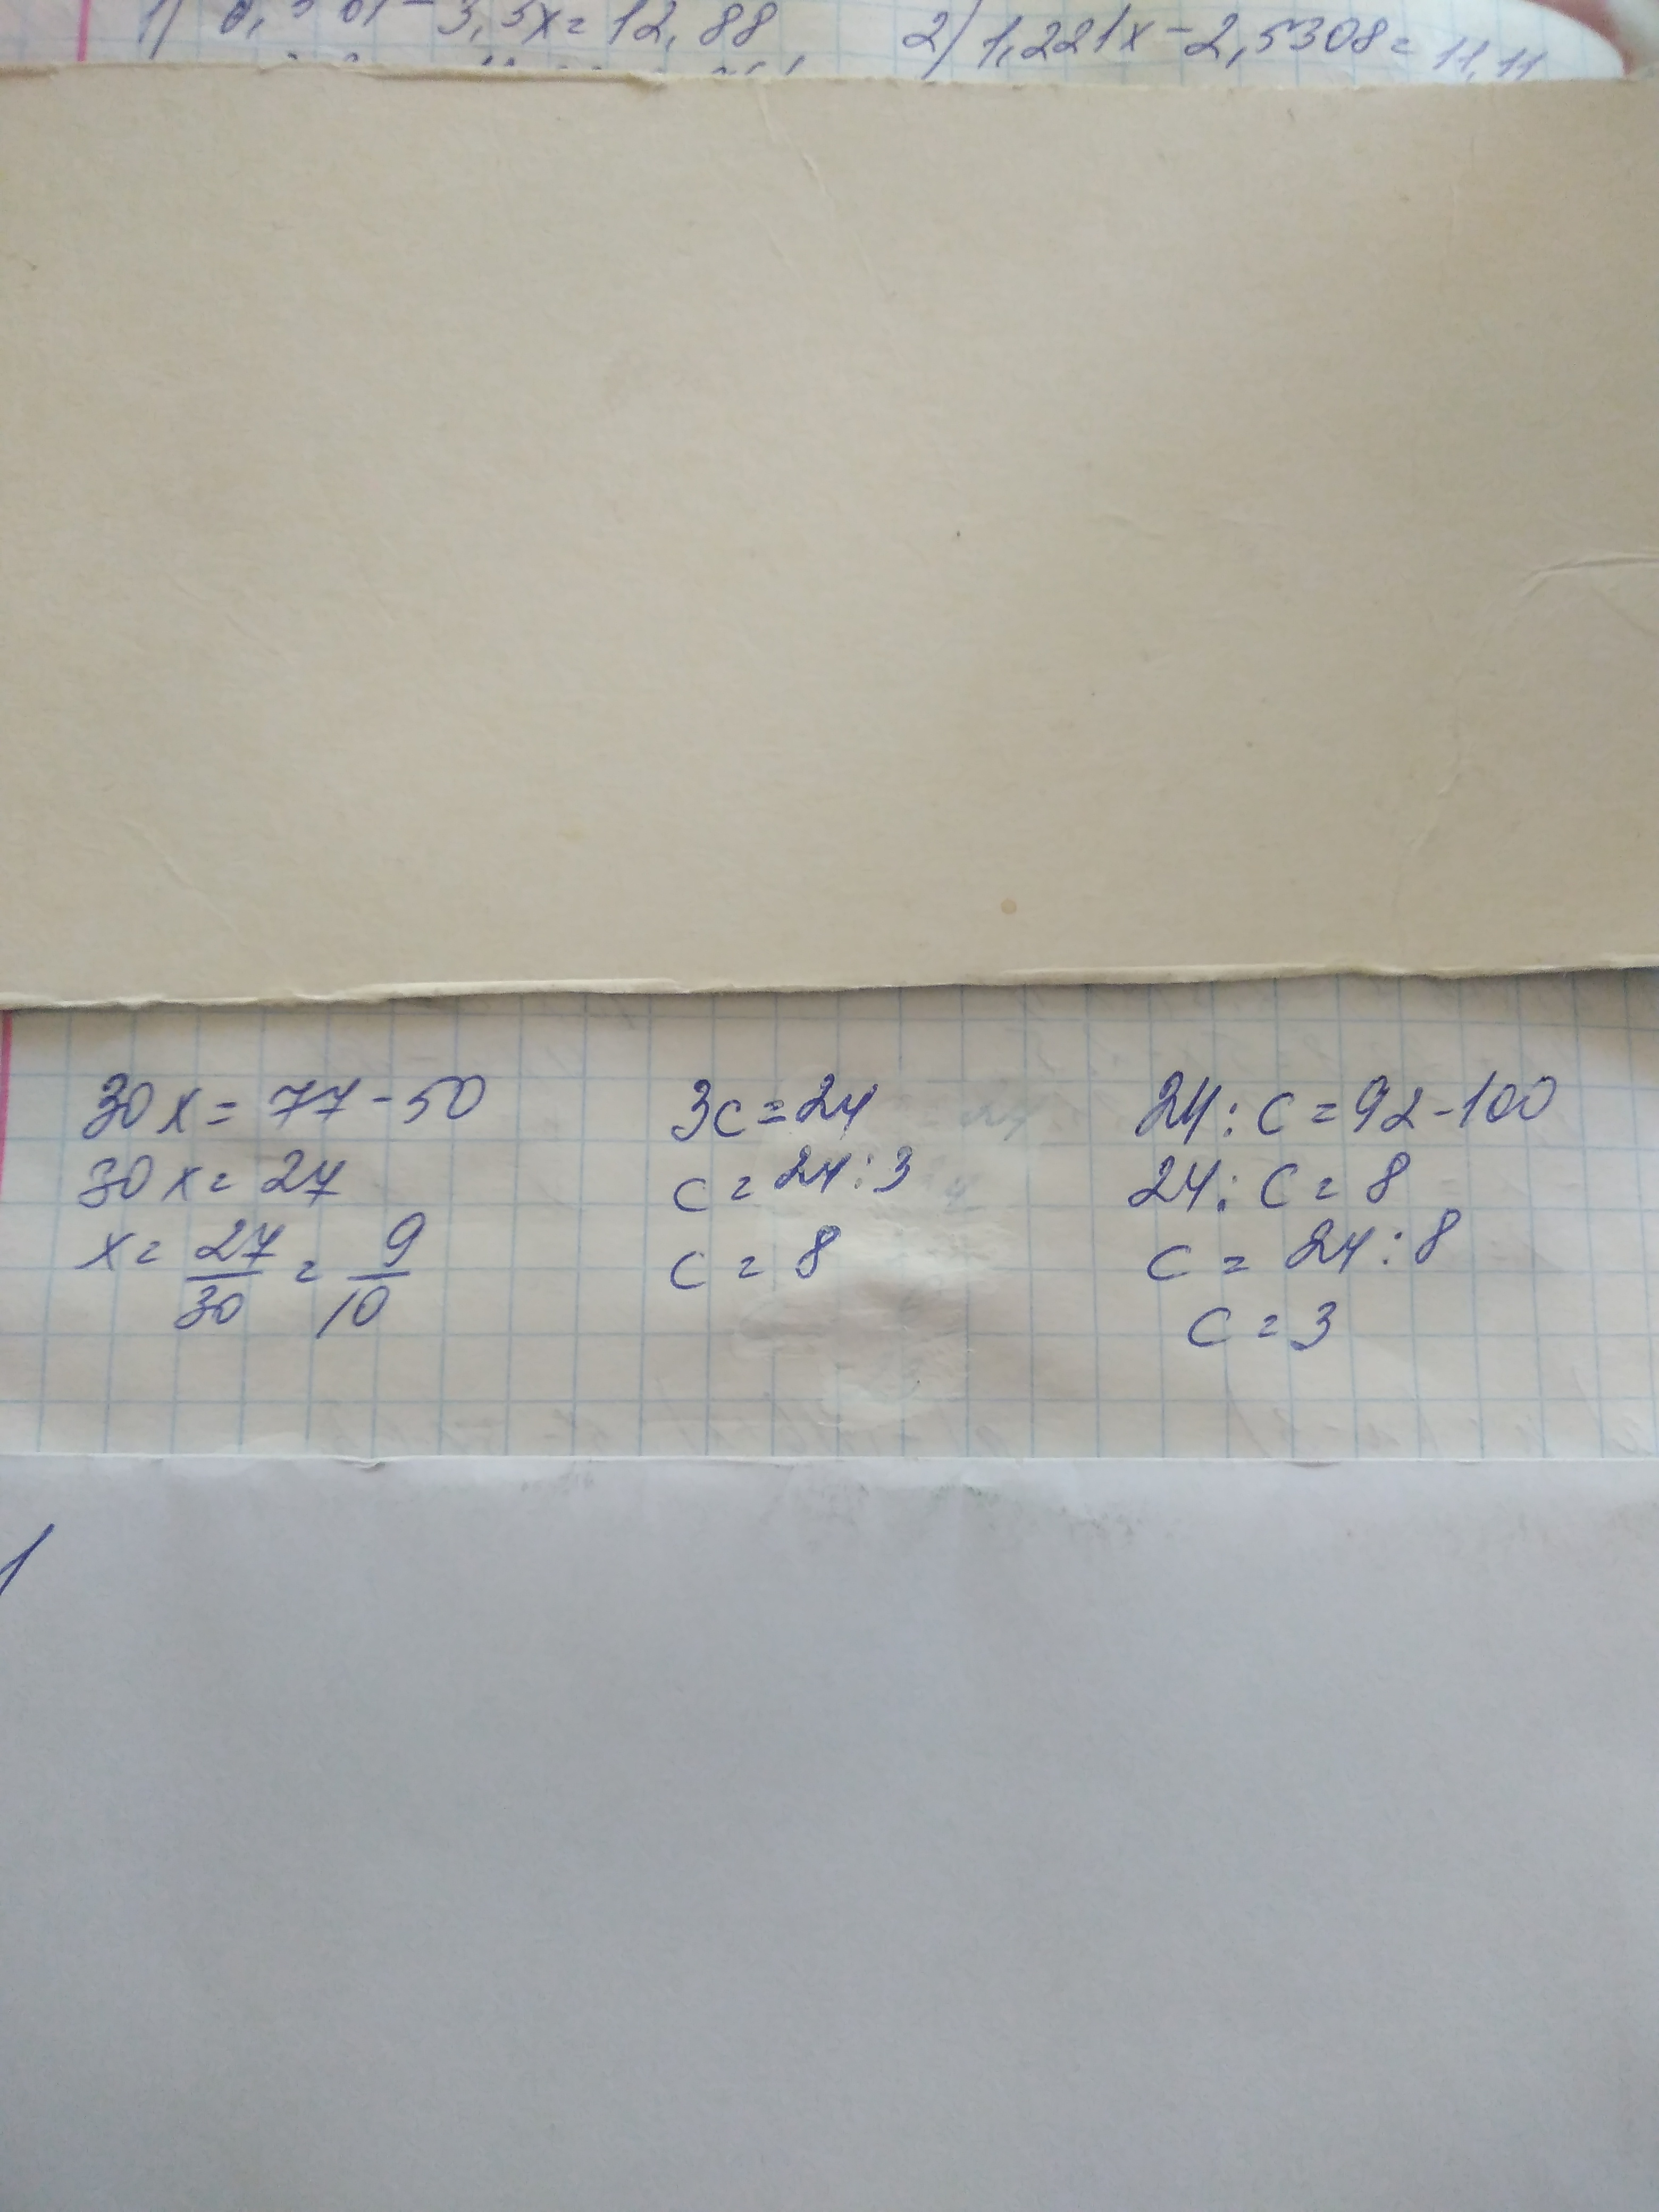 3,5x = 12,88
2) 1,221x - 2,5308 = 11,11
30x = 77 - 50
30x = 27
x = 27/30 = 9/10
3c = 24
c = 24 : 3
c = 8
24 : c = 92 - 100
24 : c = 8
c = 24 : 8
c = 3